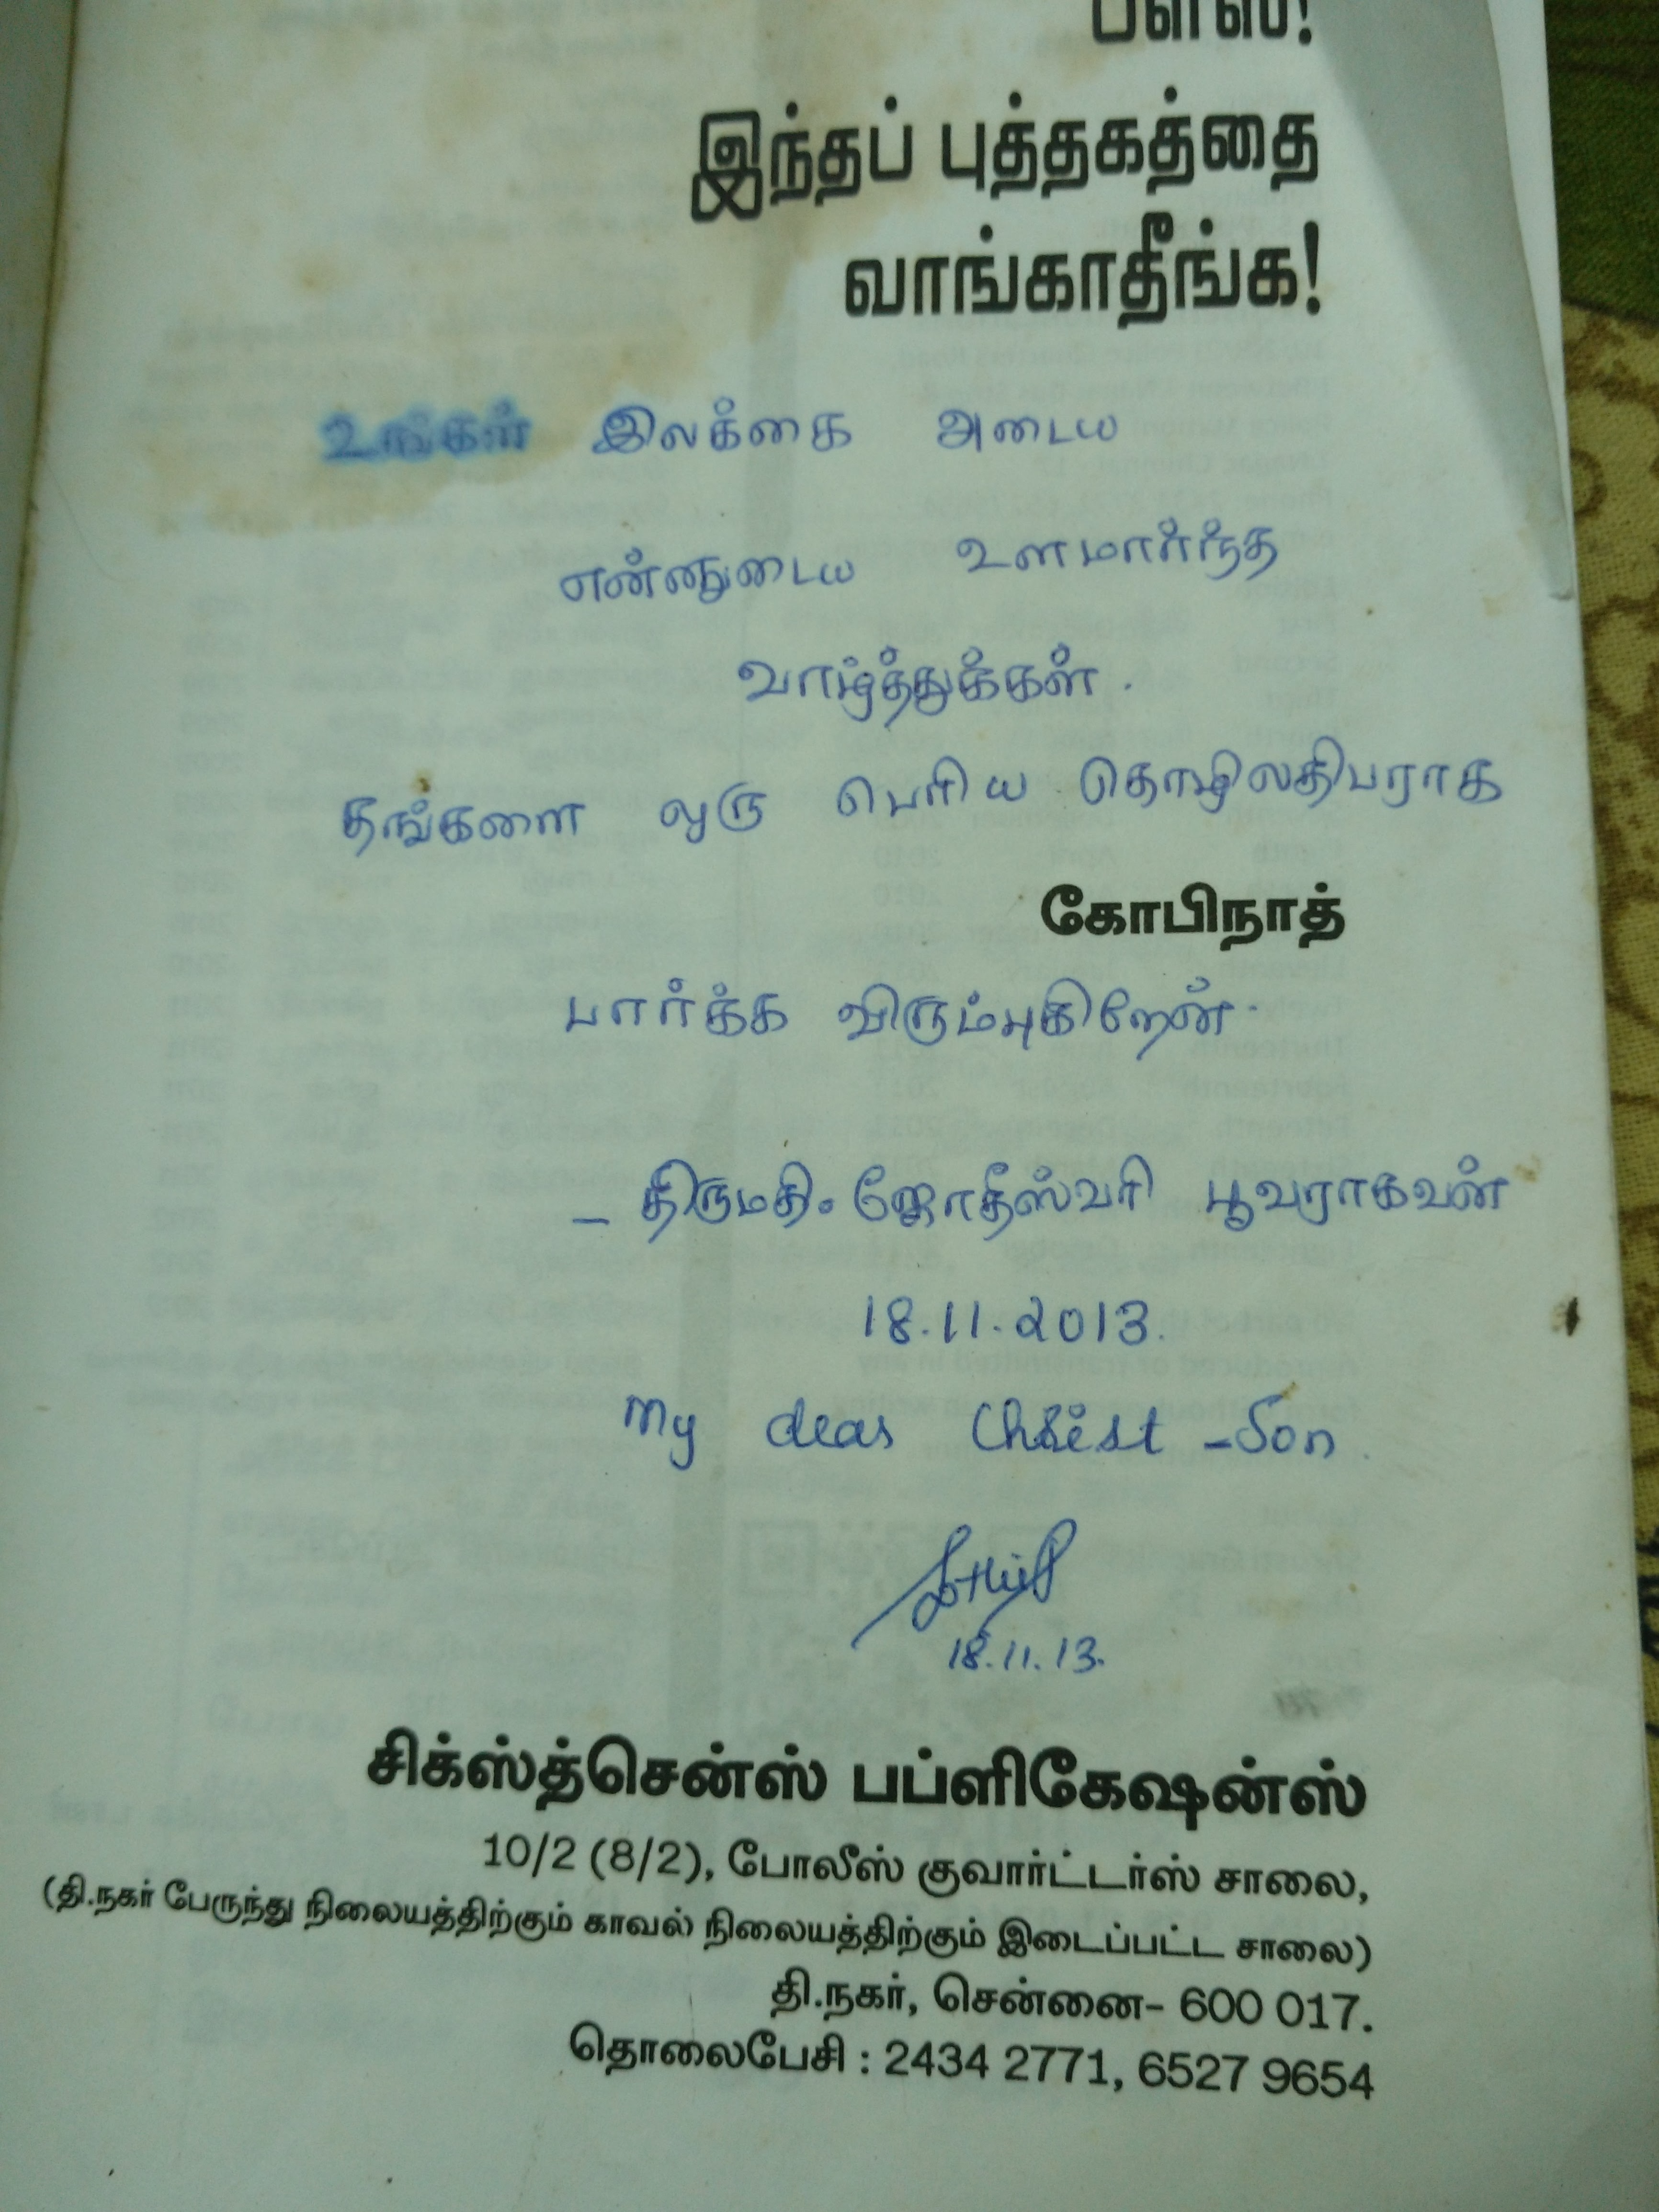 ப்ளீஸ்!
இந்தப் புத்தகத்தை
வாங்காதீங்க!
உங்கள் இலக்கை அடைய
என்னுடைய உளமார்ந்த
வாழ்த்துக்கள்.
தங்களை ஒரு பெரிய தொழிலதிபராக
கோபிநாத்
பார்க்க விரும்புகிறேன்.
- திருமதி. ஜோதீஸ்வரி பூவராகவன்
18.11.2013.
My dear Christ - Son.
18.11.13.
சிக்ஸ்த்சென்ஸ் பப்ளிகேஷன்ஸ்
10/2 (8/2), போலீஸ் குவார்ட்டர்ஸ் சாலை,
(தி.நகர் பேருந்து நிலையத்திற்கும் காவல் நிலையத்திற்கும் இடைப்பட்ட சாலை)
தி.நகர், சென்னை- 600 017.
தொலைபேசி : 2434 2771, 6527 9654